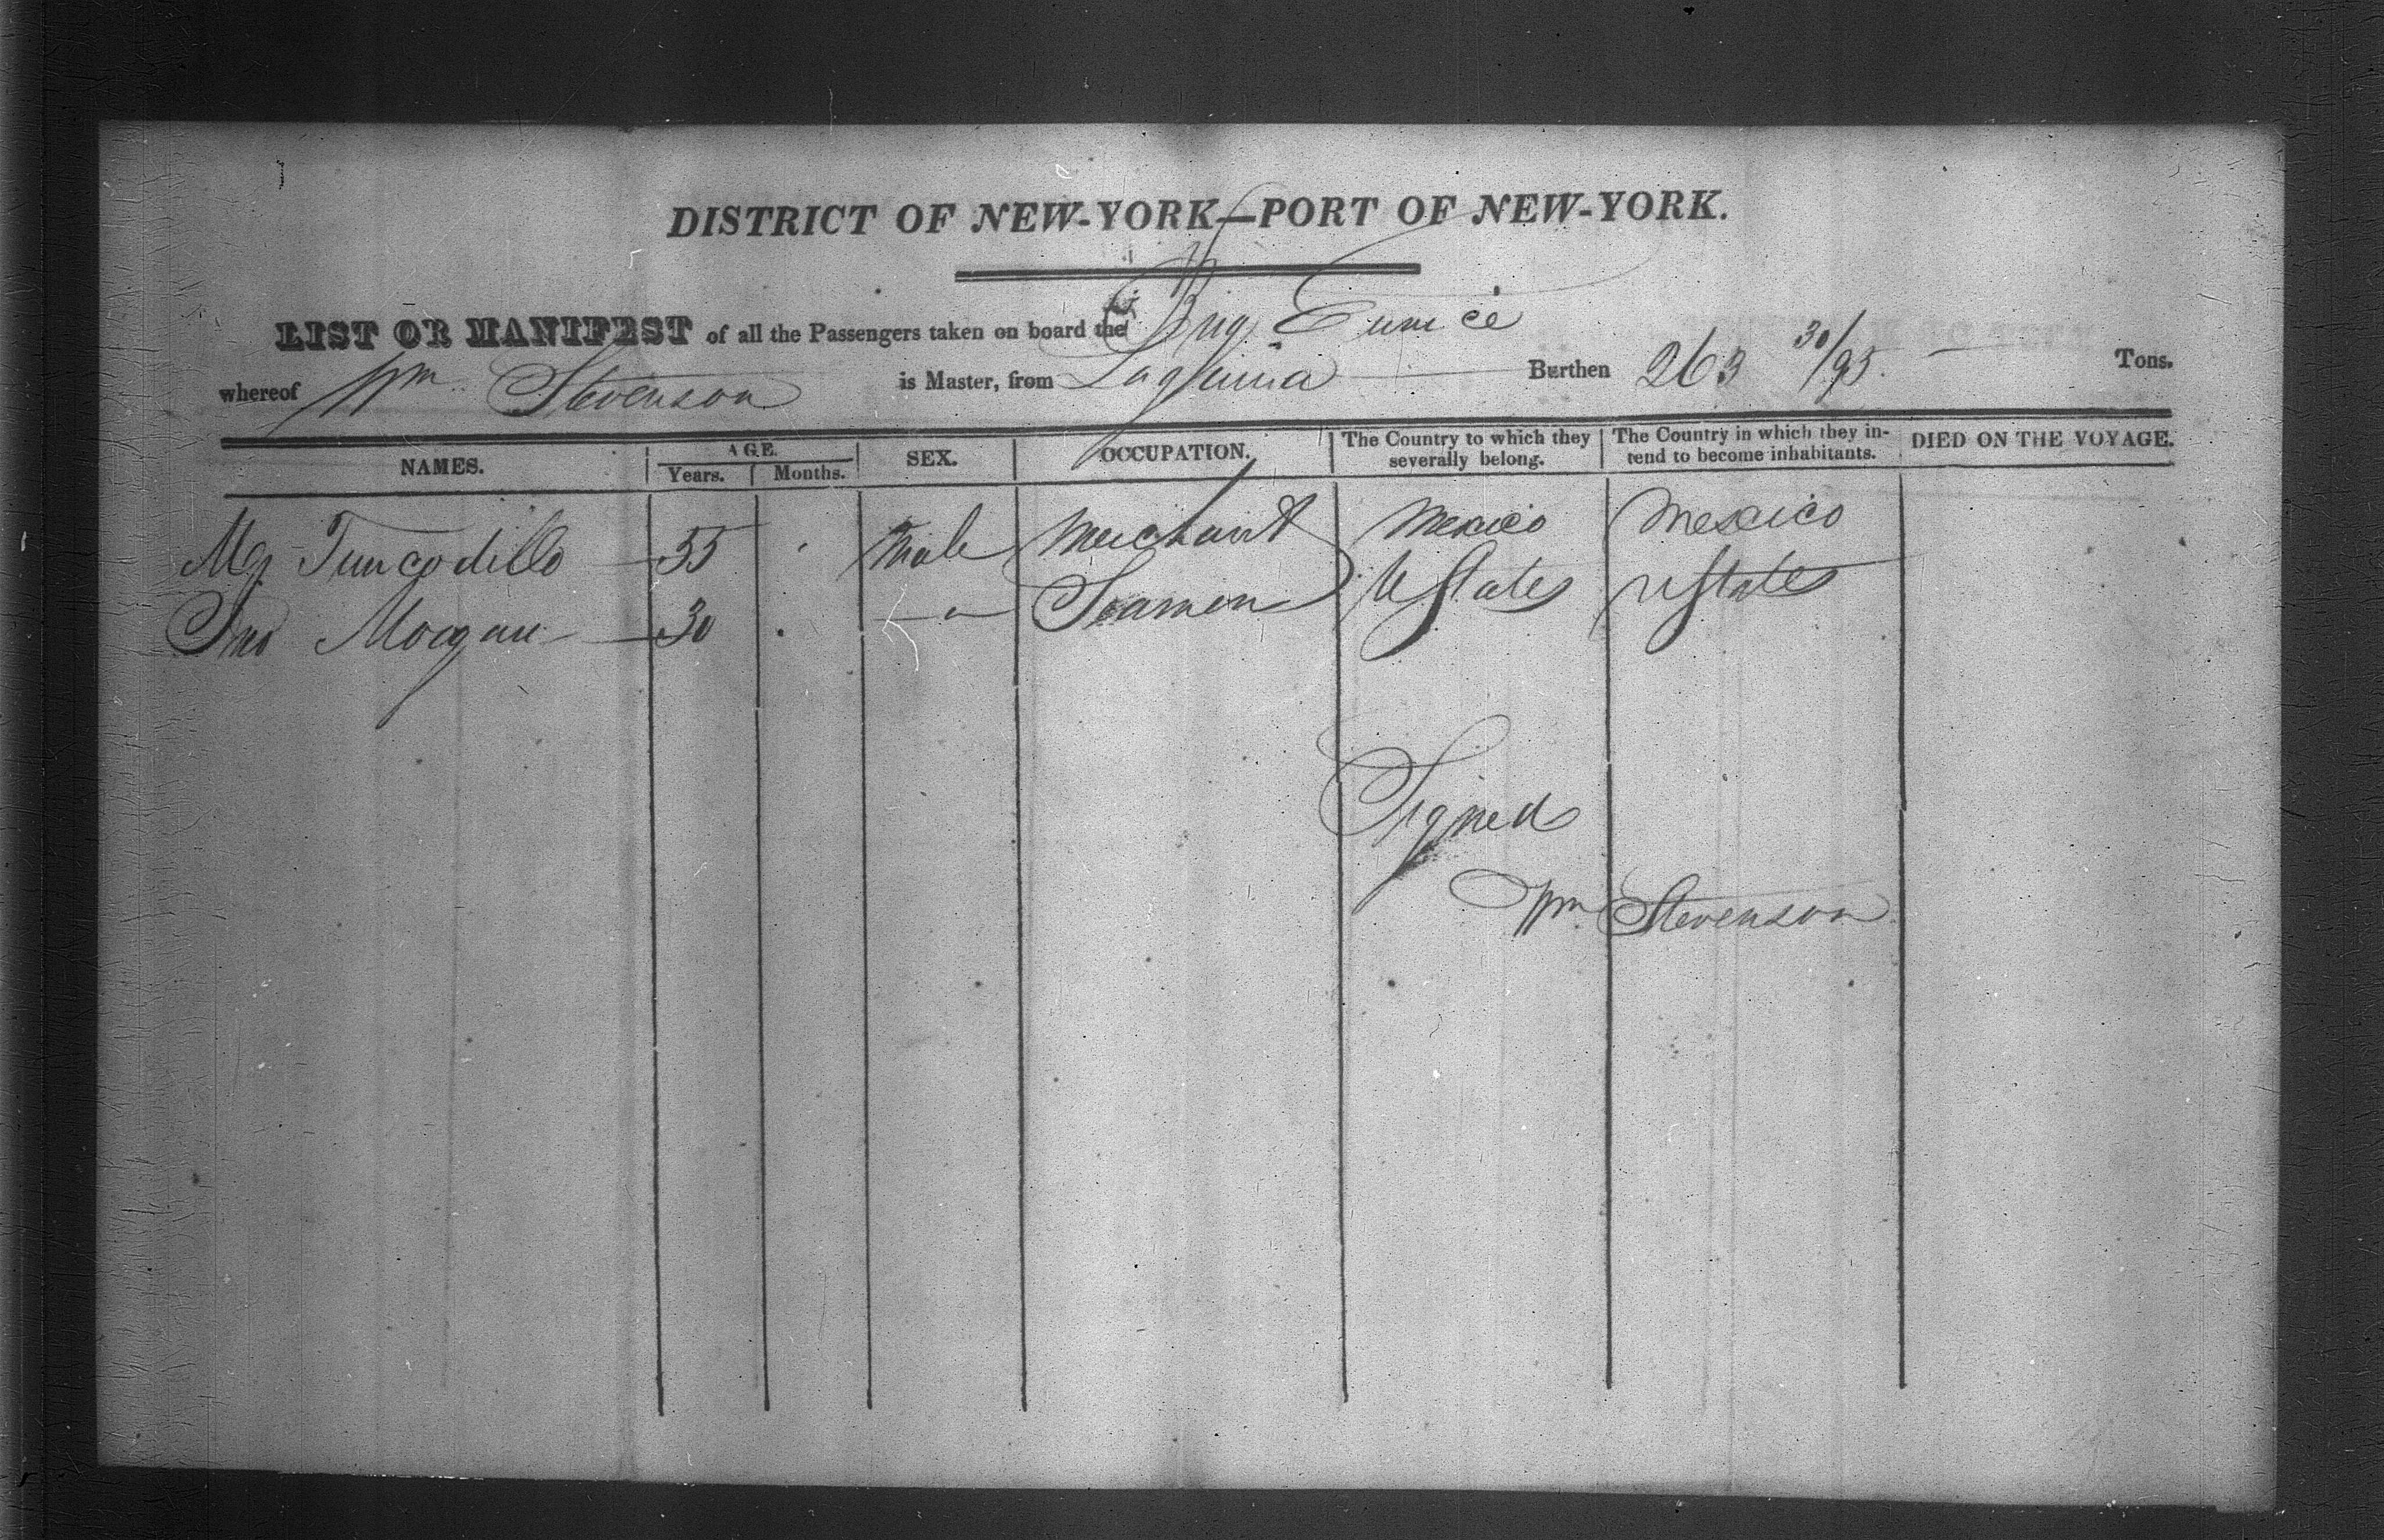 DISTRICT OF NEW-YORK—PORT OF NEW-YORK.
LIST OR MANIFEST of all the Passengers taken on board the Brig Eunice
whereof Wm Stevenson is Master, from Laguna Burthen 263 30/95 Tons.
NAMES. AGE. Years. Months. SEX. OCCUPATION. The Country to which they severally belong. The Country in which they intend to become inhabitants. DIED ON THE VOYAGE.
Mr 55 Male Merchant Mexico Mexico
Jno Morgan 30 Seamen U States U States
Signed
Wm Stevenson